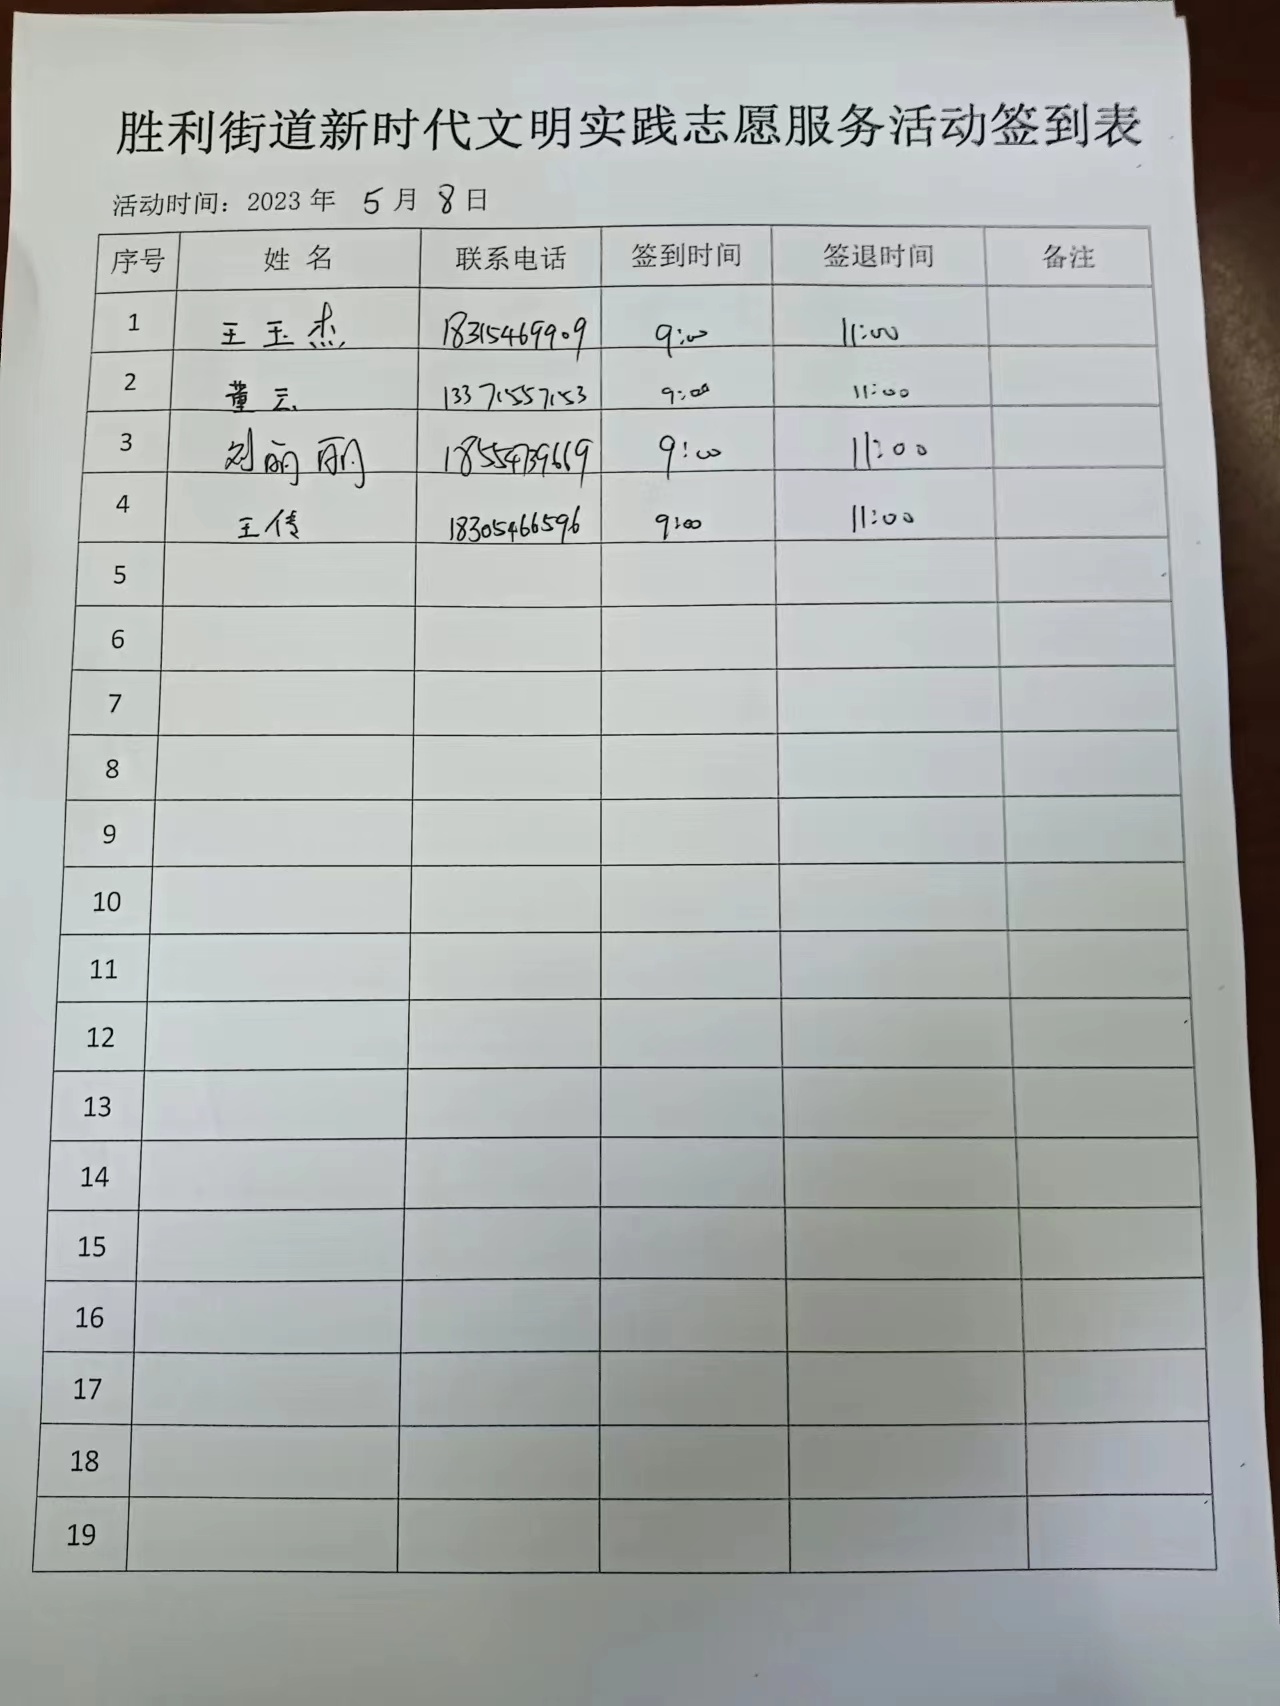 胜利街道新时代文明实践志愿服务活动签到表
活动时间：2023 年 5 月 8 日
序号 姓 名 联系电话 签到时间 签退时间 备注
1 王玉杰 18315469909 9:00 11:00
2 董云 13371557153 9:00 11:00
3 刘丽丽 18554739669 9:00 11:00
4 王传 18305466596 9:00 11:00
5
6
7
8
9
10
11
12
13
14
15
16
17
18
19